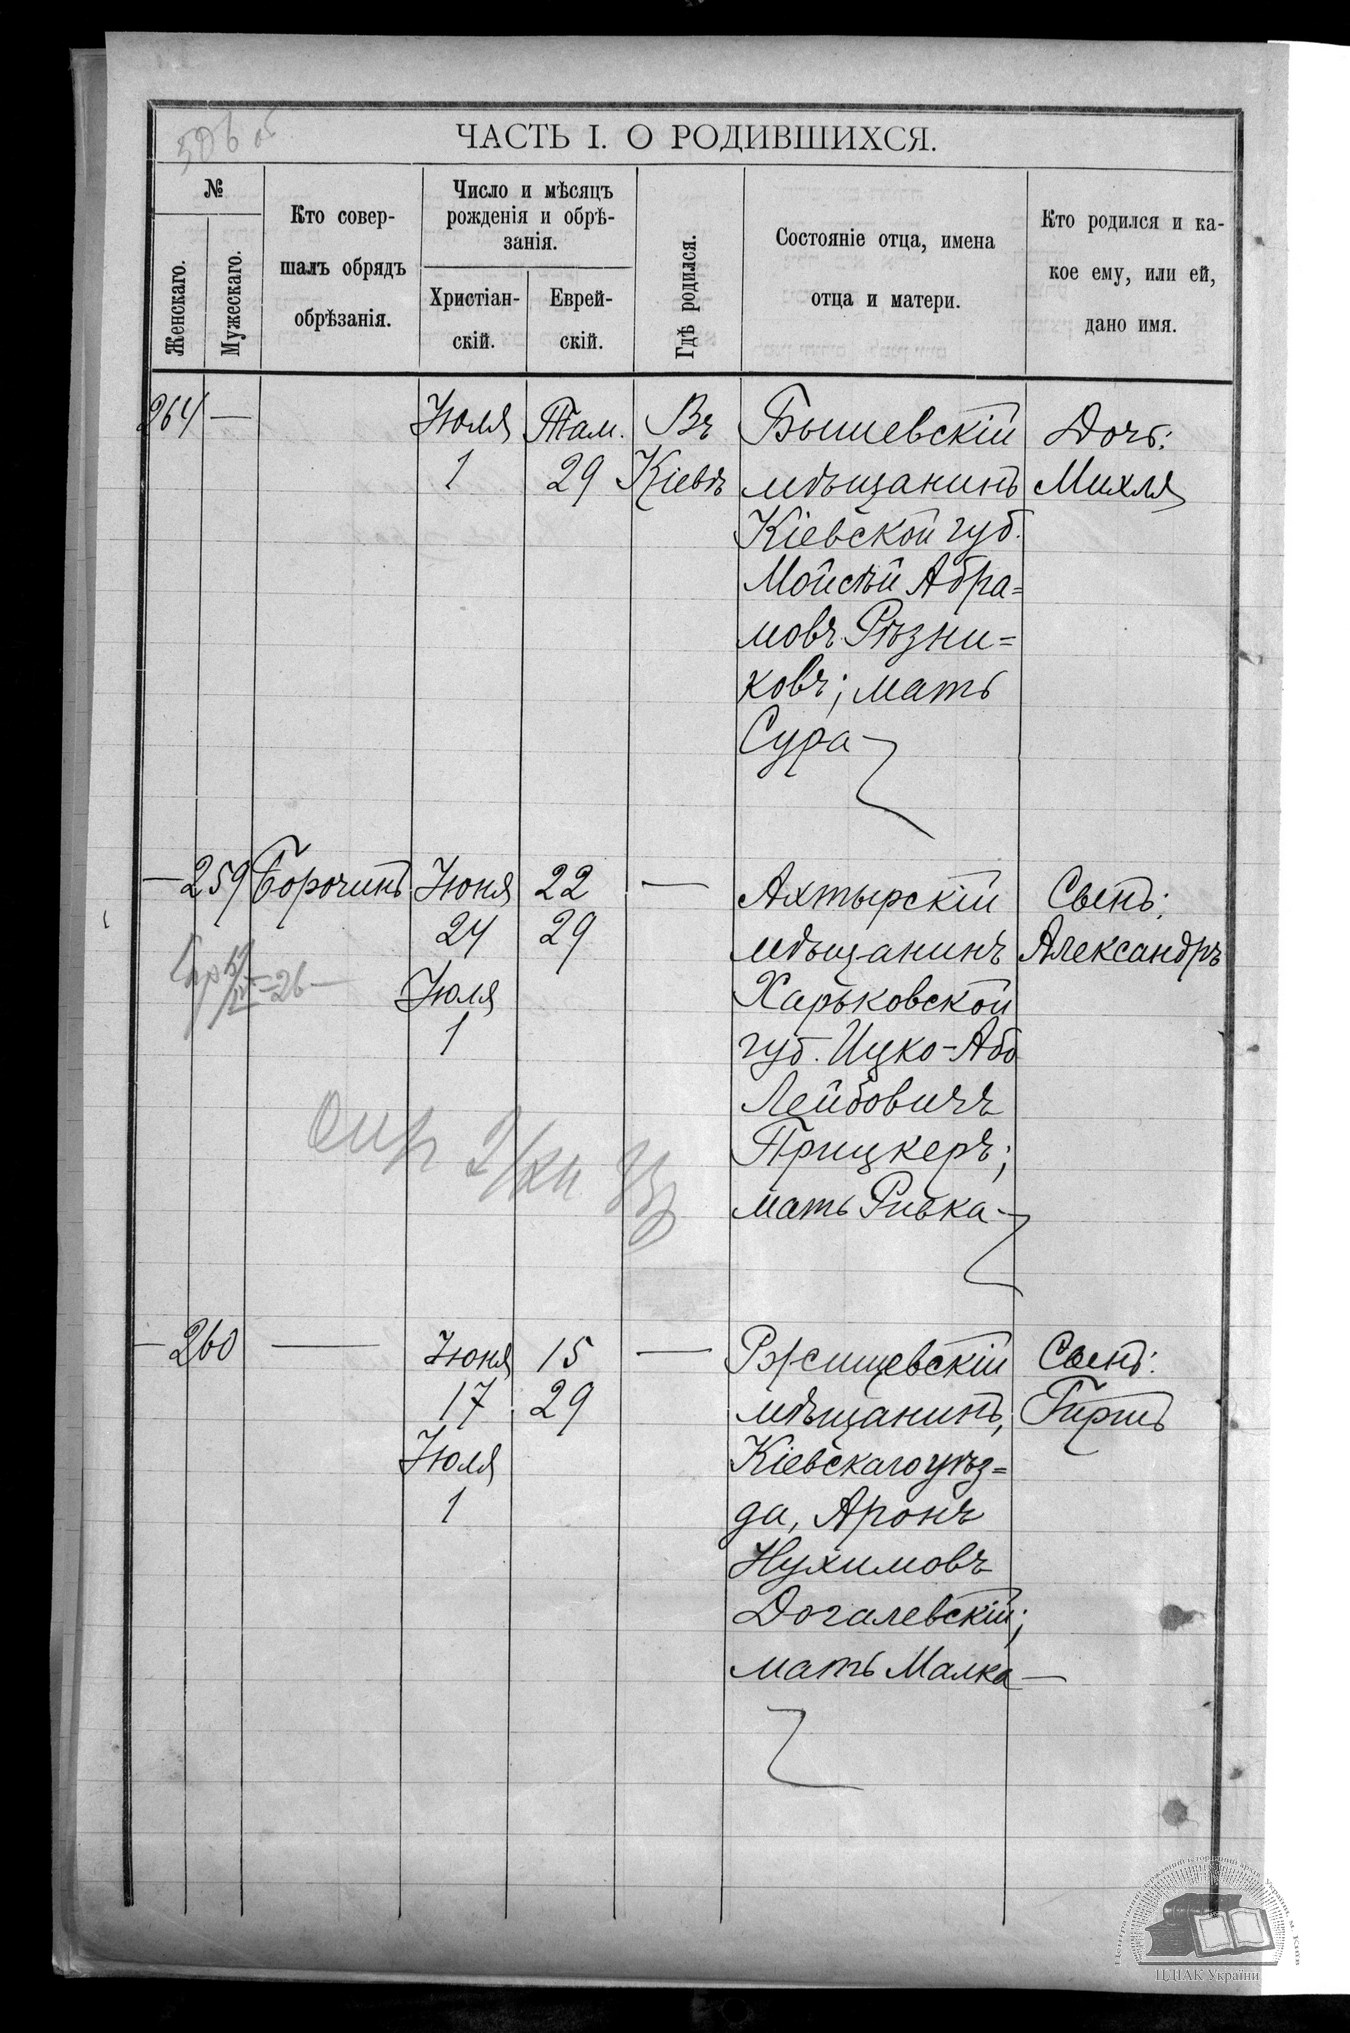 506 об
ЧАСТЬ I. О РОДИВШИХСЯ.
№
Женскаго.
Мужескаго.
Кто совер-
шалъ обрядъ
обрѣзанія.
Число и мѣсяцъ
рожденія и обрѣ-
занія.
Христіан-
скій.
Еврей-
скій.
Гдѣ родился.
Состояніе отца, имена
отца и матери.
Кто родился и ка-
кое ему, или ей,
дано имя.
264 —
Іюля
1
Там.
29
Въ
Кіевѣ
Бышевскій
мѣщанинъ
Кіевской губ.
Мойсѣй Абра=
мовъ Рѣзни=
ковъ; мать
Сура
Дочь:
Михля
— 259
Борочинъ
Іюня
24
Іюля
1
22
29
—
Ахтырскій
мѣщанинъ
Харьковской
губ. Ицко-Або
Лейбовичъ
Прицкеръ;
мать Ривка
Сынъ:
Александръ
— 260
—
Іюня
17
Іюля
1
15
29
—
Ржищевскій
мѣщанинъ,
Кіевскаго уѣз=
да, Аронъ
Нухимовъ
Догалевскій;
мать Малка —
Сынъ:
Гиршъ
ЦДІАК України